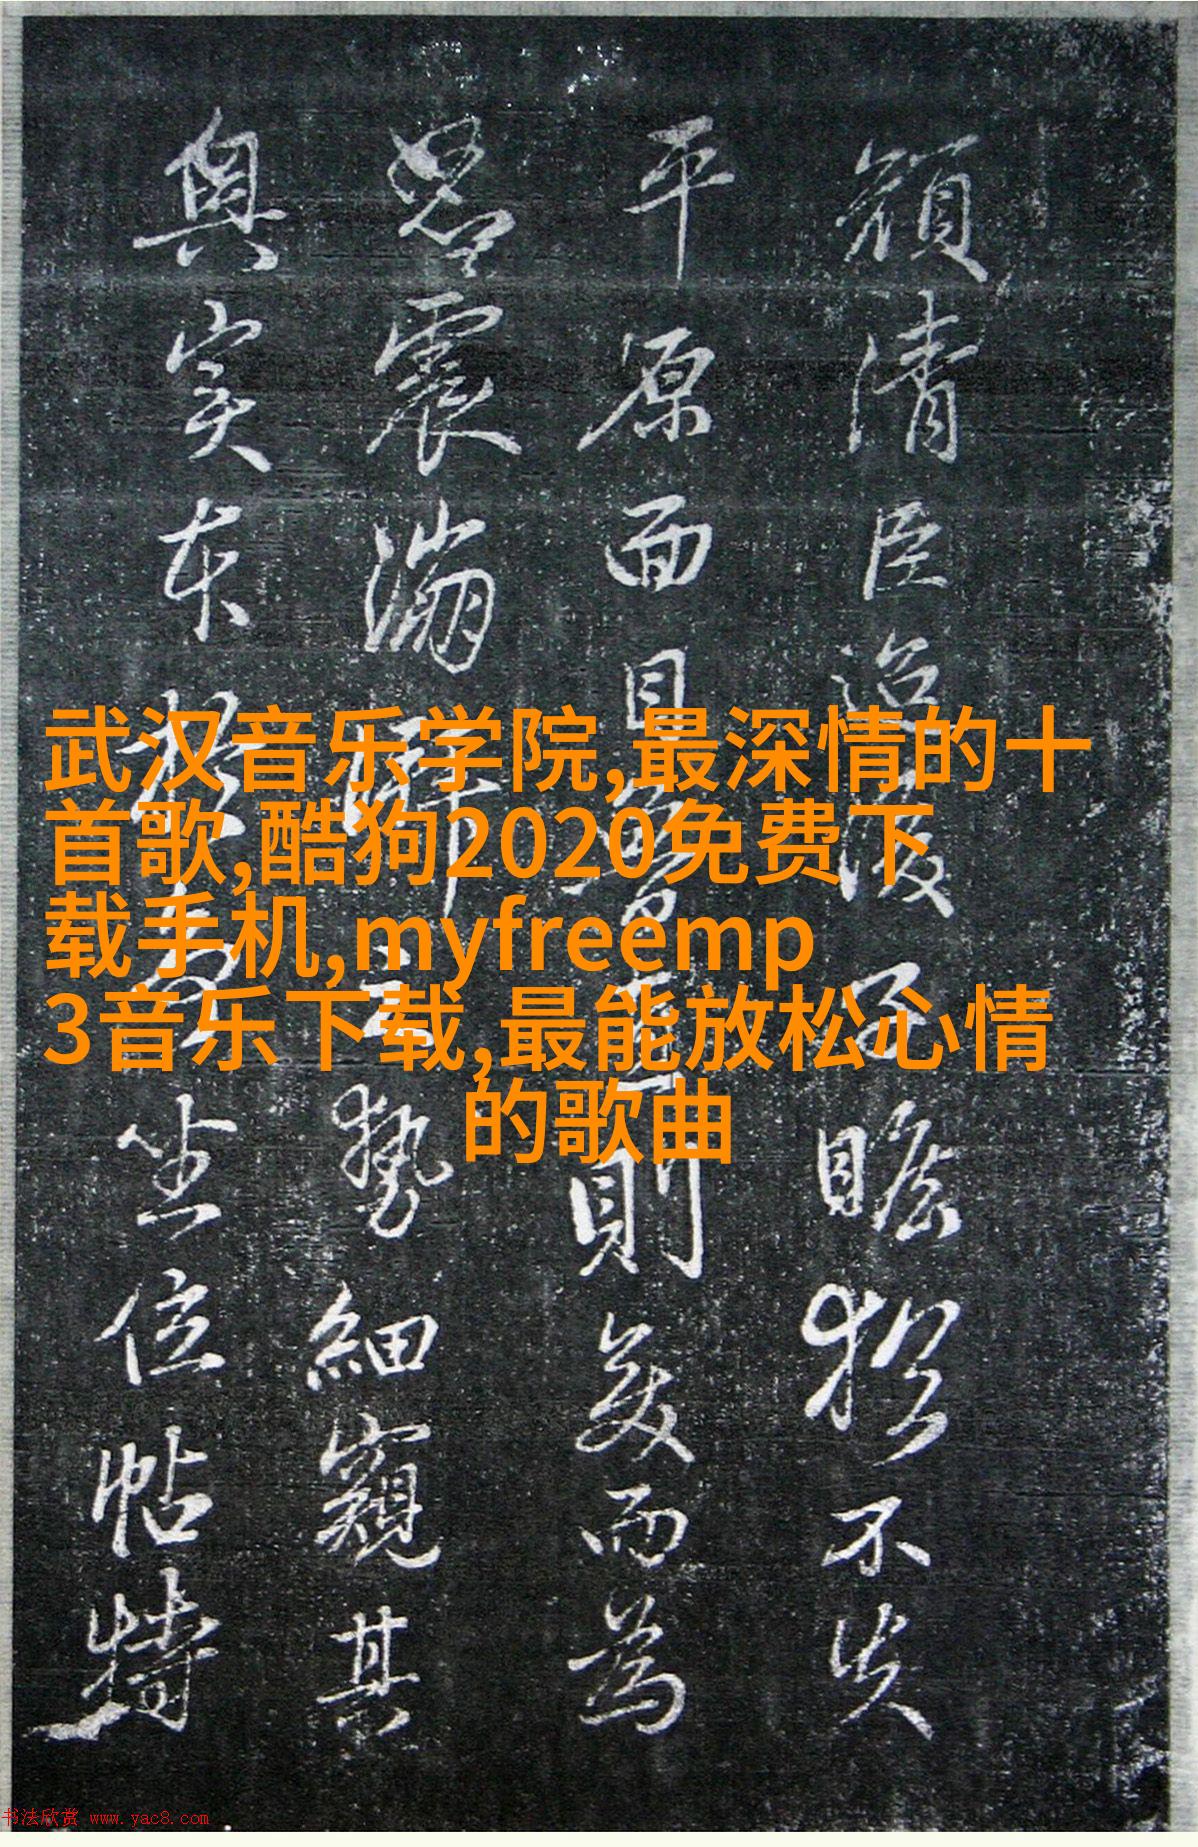 顏清臣後子瞻猶不失
平原面目魯直則而為
震勢細窺其
奥实本坐位帖特
武汉音乐学院,最深情的十
首歌,酷狗2020免费下
载手机,myfreemp
3音乐下载,最能放松心情
的歌曲
书法欣赏 www.yac8.com